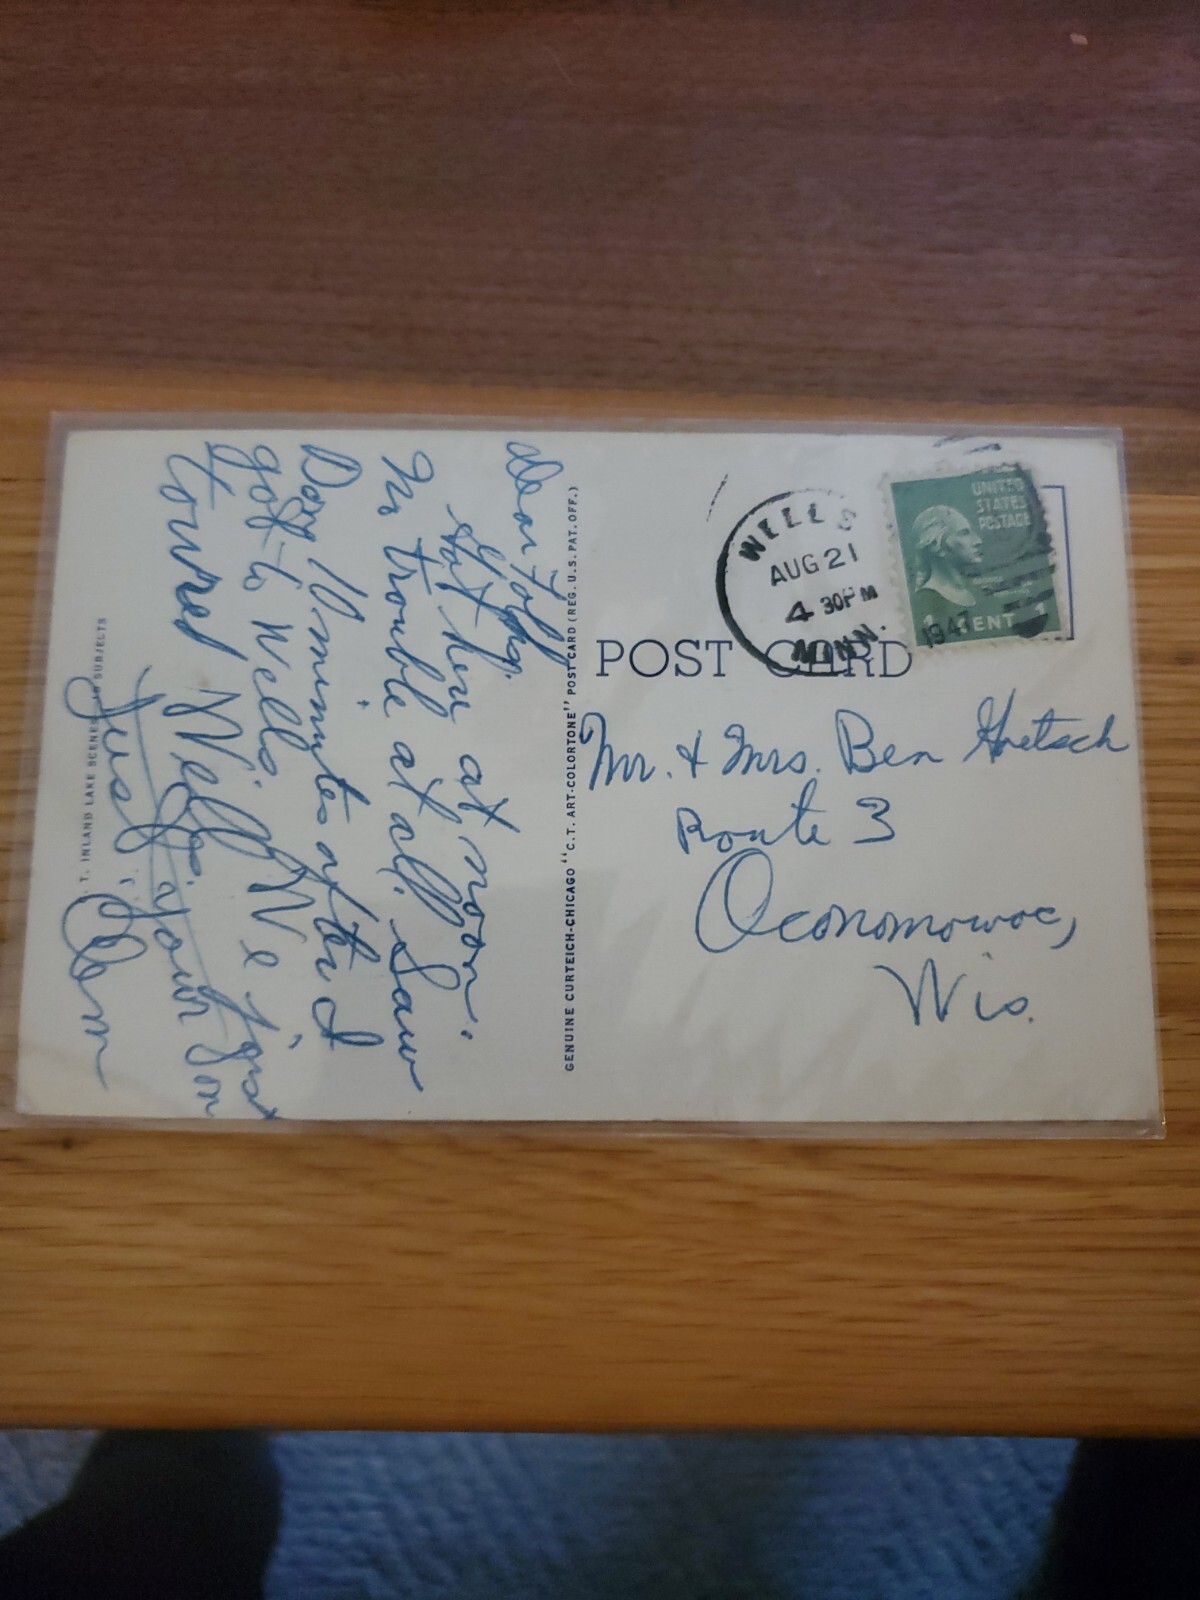 Dear Folks,
Got here at noon.
No trouble at all. Saw
Dory 10 minutes after I
got to Wells. We just
toured Wells.
Just your son
Clem
T. INLAND LAKE SCENES SUBJECTS
GENUINE CURTEICH-CHICAGO "C.T. ART-COLORTONE" POST CARD (REG. U.S. PAT. OFF.)
WELLS
AUG 21
4 30PM
MINN.
194
UNITED
STATES
POSTAGE
1 CENT 1
POST CARD
Mr. & Mrs. Ben
Route 3
Oconomowoc,
Wis.